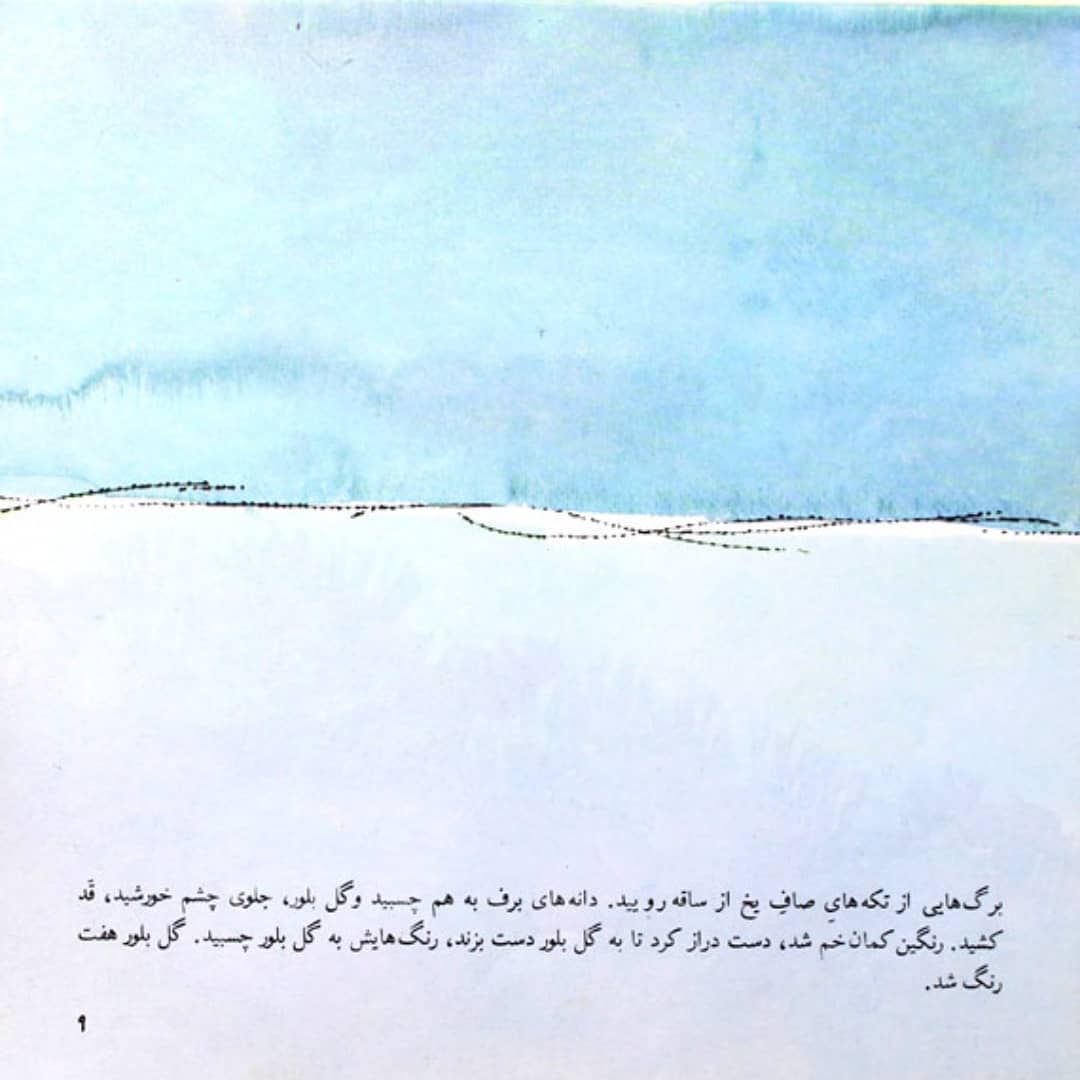 برگ‌هایی از تکه‌هایِ صافِ یخ از ساقه رویید. دانه‌های برف به هم چسبید وگل بلور، جلوی چشم خورشید، قَد
کشید. رنگین کمان خم شد، دست دراز کرد تا به گل بلور دست بزند، رنگ‌هایش به گل بلور چسبید. گل بلور هفت
رنگ شد.
۹